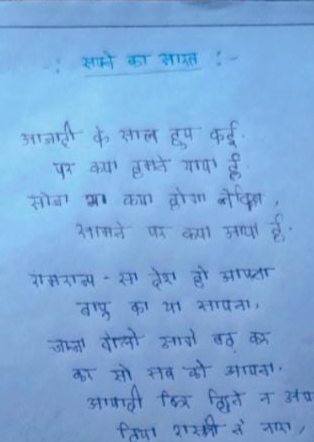 -: सपने का भारत :-
आजादी के साल हुए कई.
पर क्या हमने पाया है
सोचा था क्या होगा लेकिन,
सामने पर क्या आया है.
रामराज्य - सा देश हो अपना
बापू का था सपना,
आगे बढ़ कर
सब को अपना.
आजादी फिर छिने न
दिया शास्त्री ने नारा,